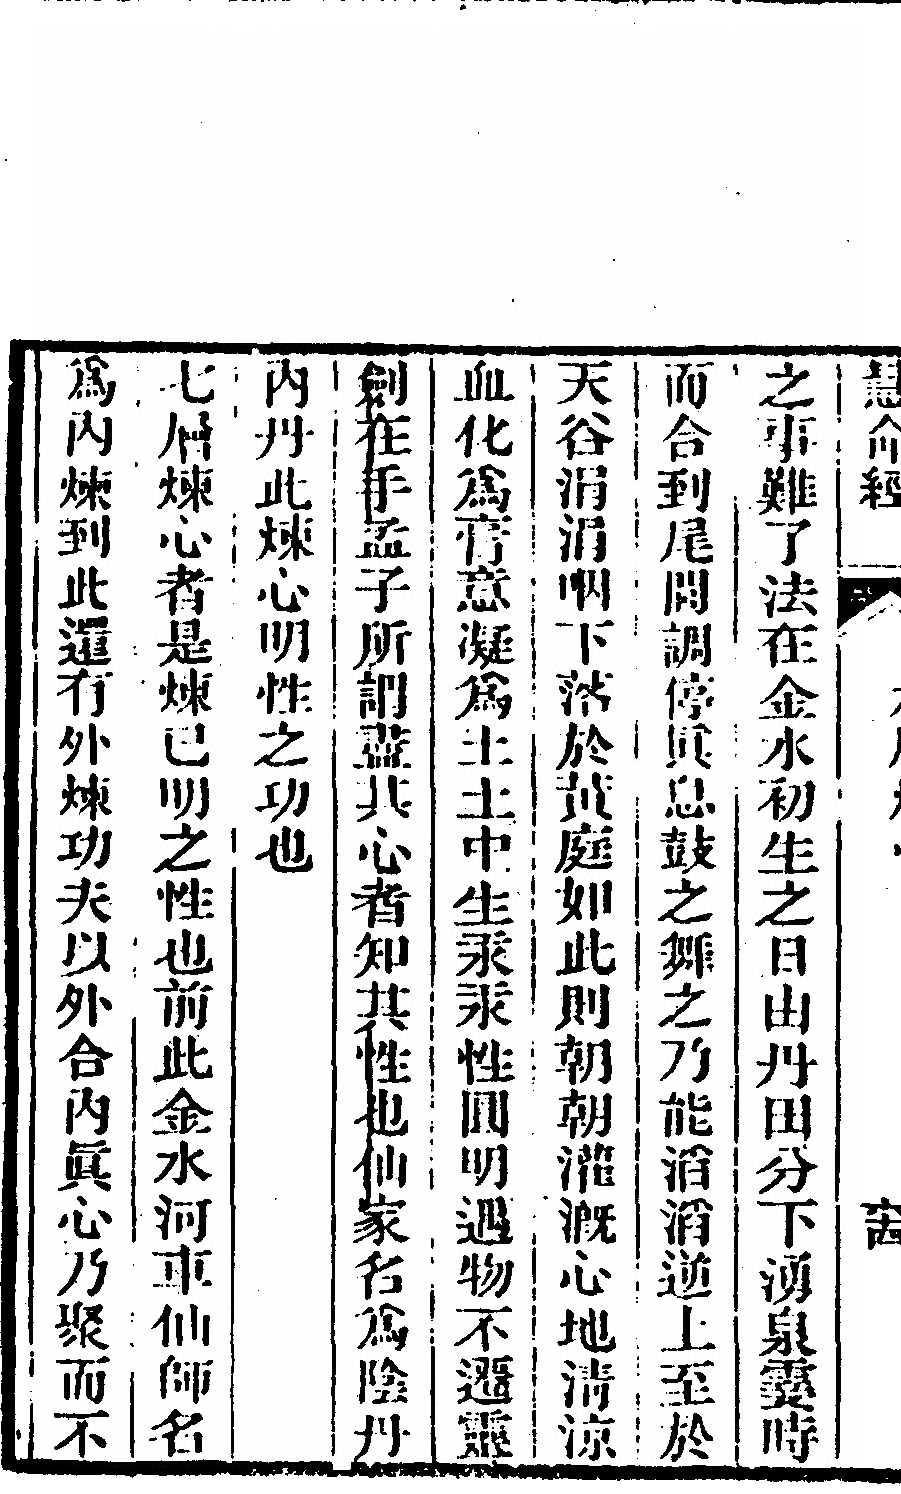 慧命經
之事難了法在金水初生之日由丹田分下湧泉霎時
而合到尾閭調停眞息鼓之舞之乃能滔滔逆上至於
天谷涓涓咽下落於黃庭如此則朝朝灌漑心地清涼
血化爲膏意凝爲土土中生汞汞性圓明遇物不遷靈
劍在手孟子所謂盡其心者知其性也仙家名爲陰丹
內丹此煉心明性之功也
七層煉心者是煉已明之性也前此金水河車仙師名
爲內煉到此還有外煉功夫以外合內眞心乃聚而不